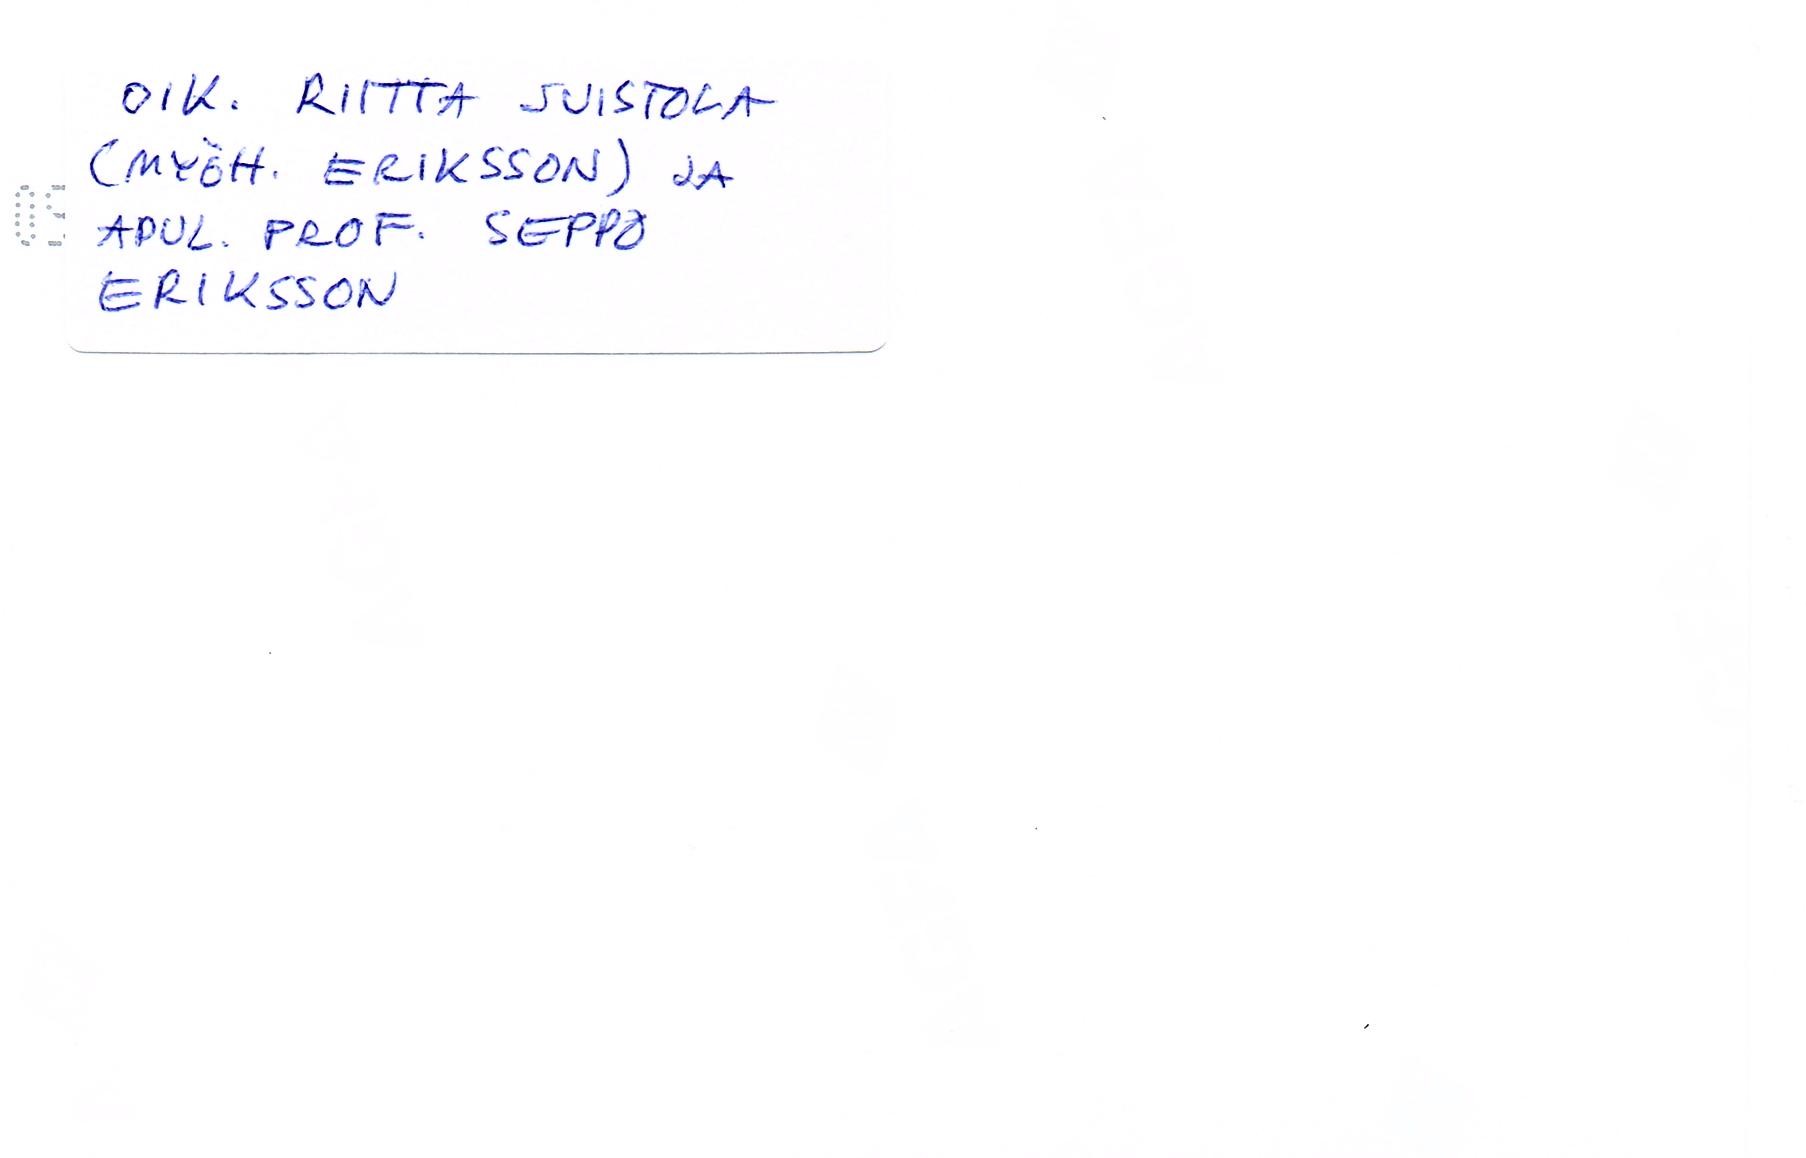 OIK. RIITTA SUISTOLA
(MYÖH. ERIKSSON) JA
APUL. PROF. SEPPO
ERIKSSON